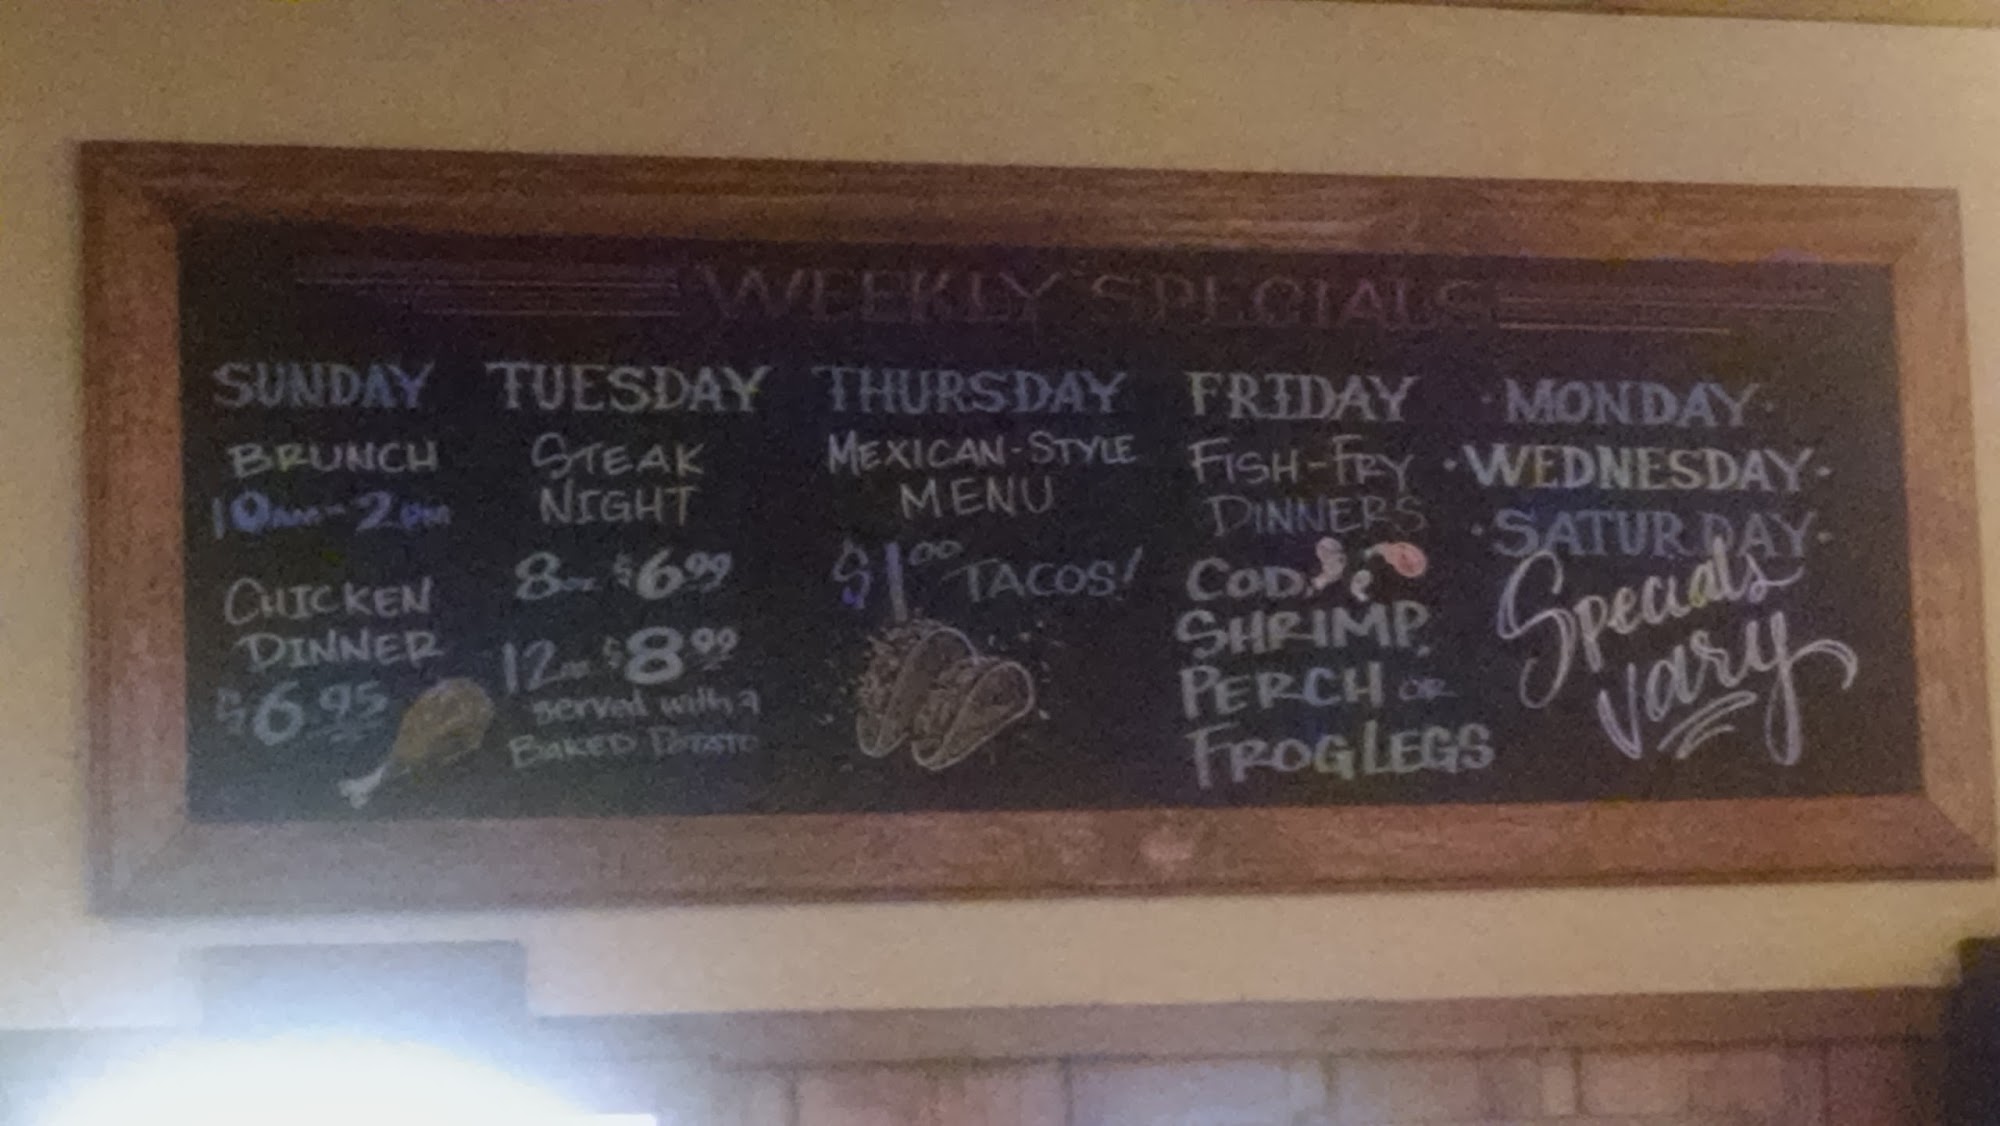 WEEKLY SPECIALS
SUNDAY
BRUNCH
10am-2pm
CHICKEN
DINNER
$6.95
TUESDAY
STEAK
NIGHT
8oz $6.99
12oz $8.99
served with a
BAKED POTATO
THURSDAY
MEXICAN-STYLE
MENU
$1.00 TACOS!
FRIDAY
FISH-FRY
DINNERS
COD,
SHRIMP,
PERCH OR
FROG LEGS
·MONDAY·
·WEDNESDAY·
·SATURDAY·
Specials
vary